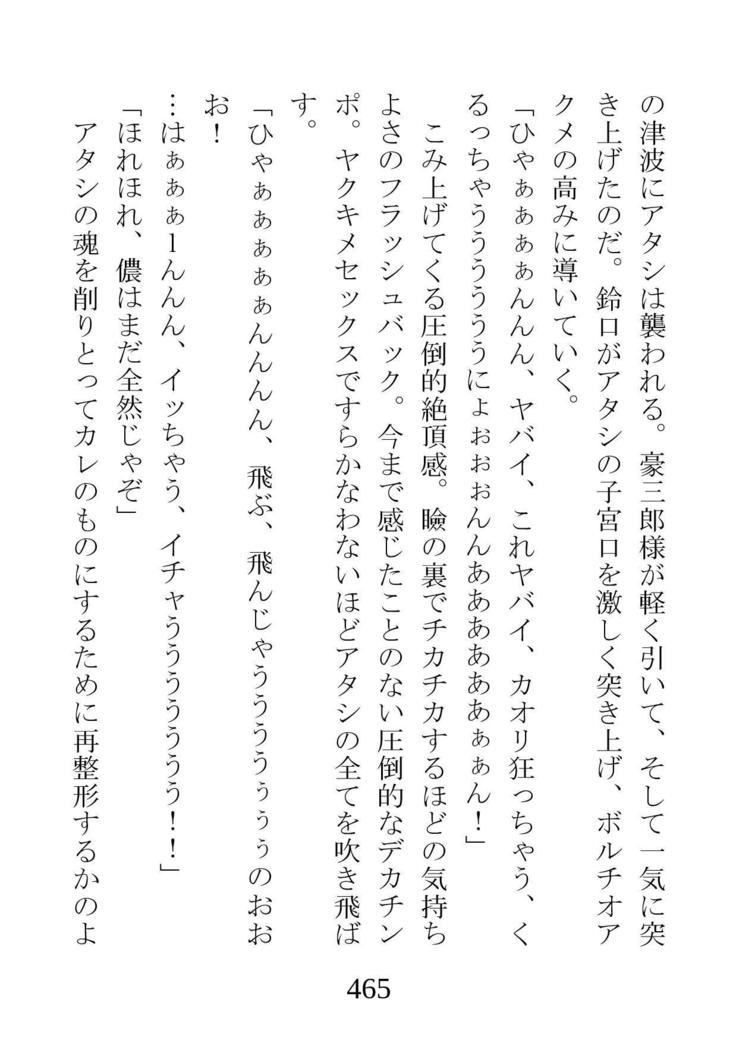 の津波にアタシは襲われる。豪三郎様が軽く引いて、そして一気に突
き上げたのだ。鈴口がアタシの子宮口を激しく突き上げ、ボルチオア
クメの高みに導いていく。
「ひゃぁぁぁぁんんん、ヤバイ、これヤバイ、カオリ狂っちゃう、く
るっちゃうううううにょぉぉぉんんああああああぁぁん！」
こみ上げてくる圧倒的絶頂感。瞼の裏でチカチカするほどの気持ち
よさのフラッシュバック。今まで感じたことのない圧倒的なデカチン
ポ。ヤクキメセックスですらかなわないほどアタシの全てを吹き飛ば
す。
「ひゃぁぁぁぁぁんんんん、飛ぶ、飛んじゃううううぅぅぅのおお
お！
…はぁぁぁ1んんん、イッちゃう、イチャううううううう！！」
「ほれほれ、儂はまだ全然じゃぞ」
アタシの魂を削りとってカレのものにするために再整形するかのよ
465